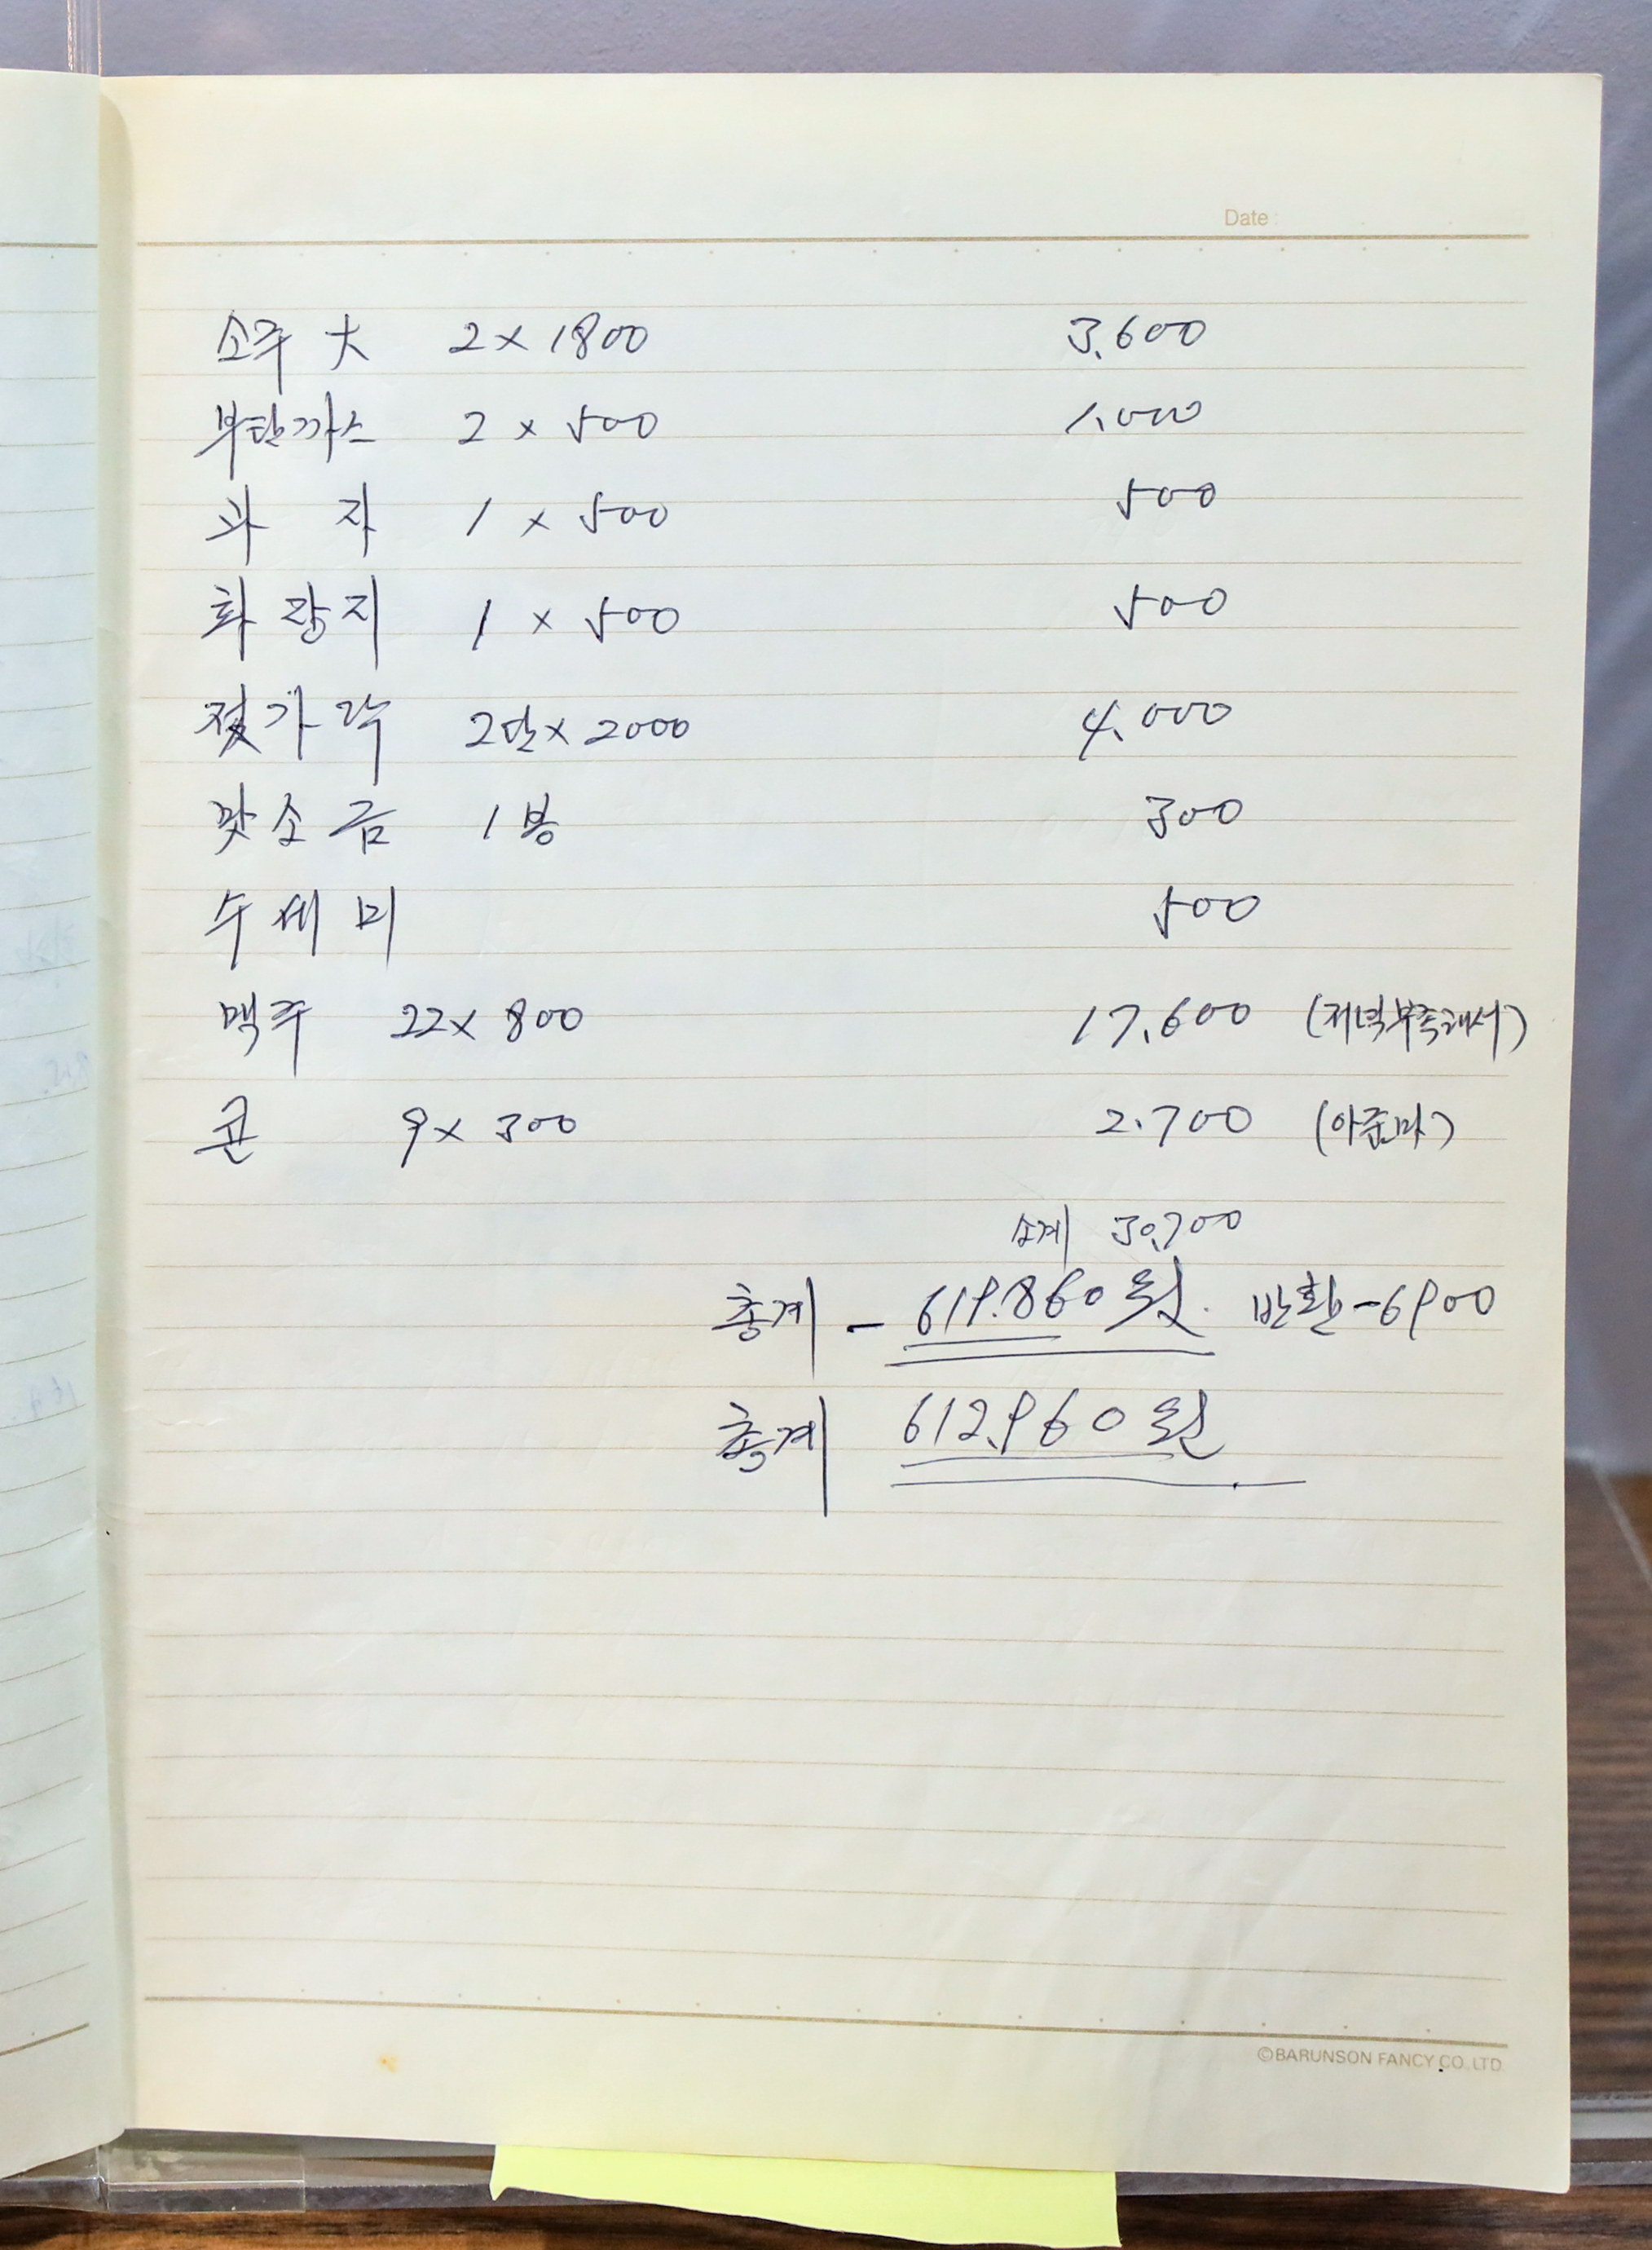 Date :
소주 大 2 × 1800 3,600
부탄까스 2 × 500 1,000
과 자 1 × 500 500
화장지 1 × 500 500
젓가락 2단 × 2000 4,000
맛소금 1봉 300
수세미 500
맥주 22 × 800 17,600 (저녁부족해서)
콜 9 × 300 2,700 (아줌마)
소계 30,700
총계 - 619.860원. 반환-6900
총계 612,960원
©BARUNSON FANCY CO. LTD.